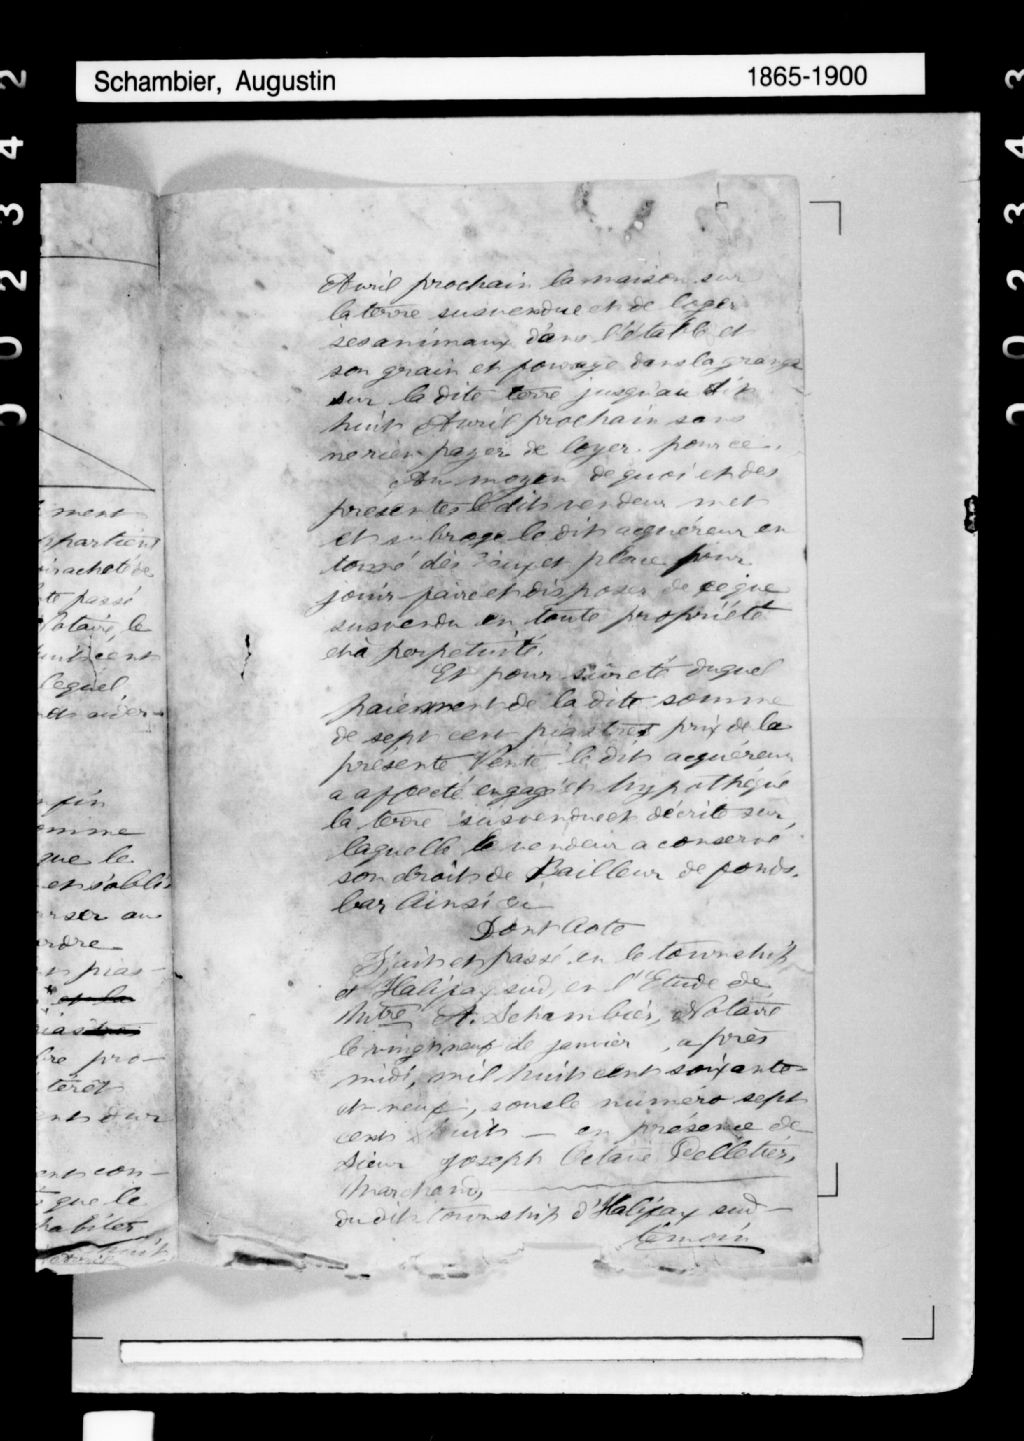 Schambier, Augustin
1865-1900
0 0 2 3 4 2
0 0 2 3 4 3
ment
appartient
acheté de
te passé
Notaire, le
cent
lequel
enfin
omme
que le
et s'obli
rser au
ordre
pias-
et la
piastres
bre pro-
terêt
con-
que le
habiter
Avril prochain la maison sur
la terre susvendue et de loger
ses animaux dans l'étable et
son grain et fourage dans la grange
sur la dite terre jusqu'au dix
huit Avril prochain sans
ne rien payer de loyer pour ce.
Au moyen de quoi et des
présentes le dit vendeur met
et subroge le dit acquéreur en
tous dès et place pour
jouir faire et disposer de ce que
susvendu en toute propriété
et à perpetuité.
Et pour sûreté duquel
paiement de la dite somme
de sept cent piastres prix de la
présente Vente le dit acquéreur
a affecté engagé et hypothéqué
la terre susvendue et décrite sur
laquelle le vendeur a conservé
son droit de Bailleur de fonds.
Car Ainsi &
Dont Acte
Fait et passé en le township
d'Halifax sud, en l'Etude de
Mtre A. Schambier, Notaire
le vingt neuf de janvier, après
midi, mil huit cent soixante
et neuf, sous le numéro sept
cent huit — en présence de
Sieur Joseph Octave Pelletier,
Marchand,
du dit township d'Halifax sud —
témoin